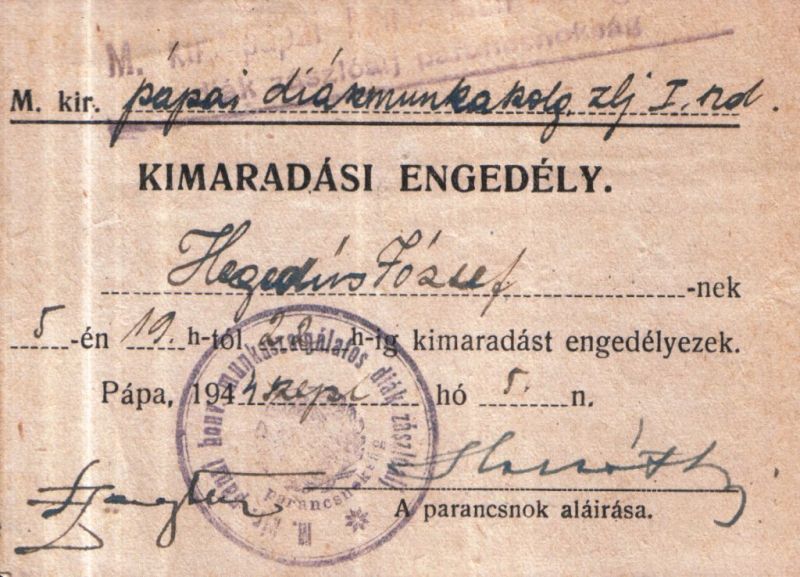 M. kir. pápai
zászlóalj parancsnokság
M. kir. pápai diákmunkakolg. zlj I. szd.
KIMARADÁSI ENGEDÉLY.
Hegedűs József -nek
5-én 19. h-tól 22 h-ig kimaradást engedélyezek.
Pápa, 1944 szept hó 5. n.
M. kir. pápai honv. munkaszolgálatos diák zászlóalj
Parancsnokság
A parancsnok aláírása.